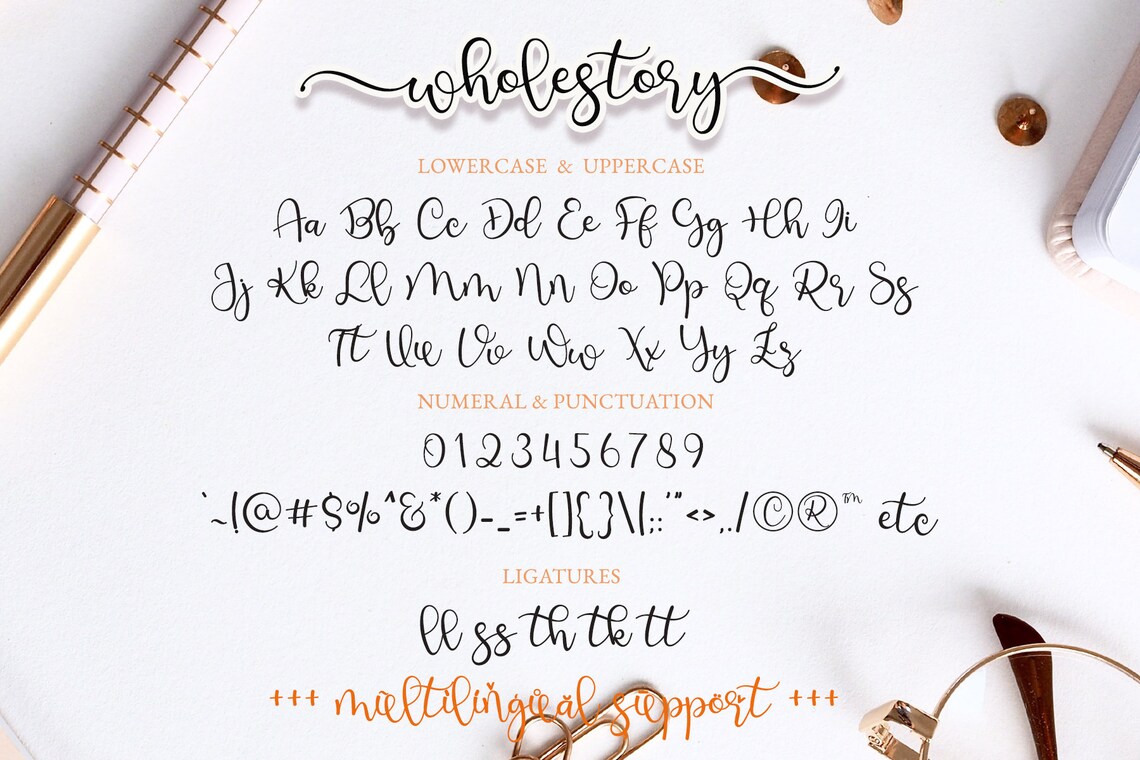 wholestory
LOWERCASE & UPPERCASE
Aa Bb Cc Dd Ee Ff Gg Hh Ii
Jj Kk Ll Mm Nn Oo Pp Qq Rr Ss
Tt Uu Vv Ww Xx Yy Zz
NUMERAL & PUNCTUATION
0123456789
`~!@#$%^&*()-_=+[]{}\|;:'"<>,./©®™ etc
LIGATURES
ll ss th tk tt
+++ multilingual support +++